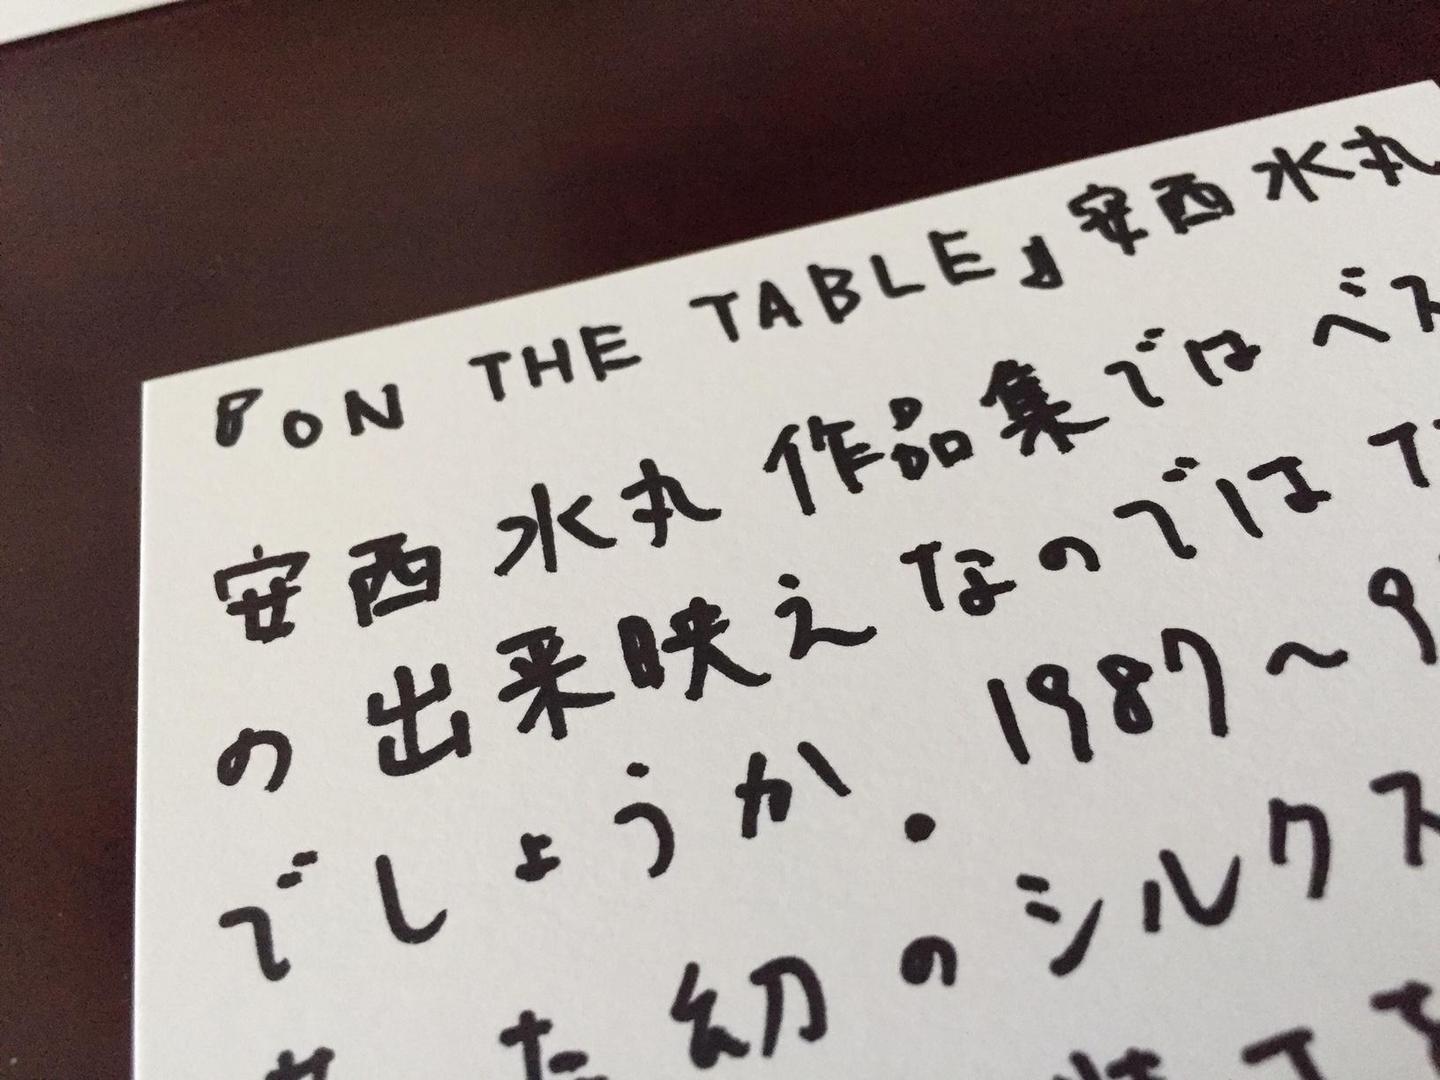 『ON THE TABLE』安西水丸
安西水丸作品集ではベス
の出来映えなのではな
でしょうか.1987〜9
た幼のシルクス